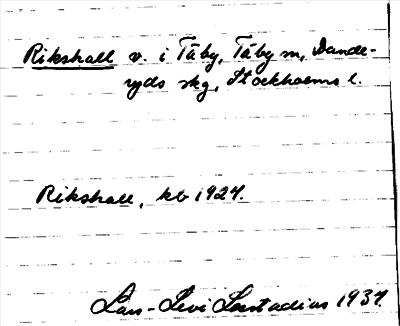 Rikshall v. i Täby, Täby sn, Dande-
ryds skg, Stockholms l.
Rikshall, kb 1927.
Lars-Levi Læstadius 1937